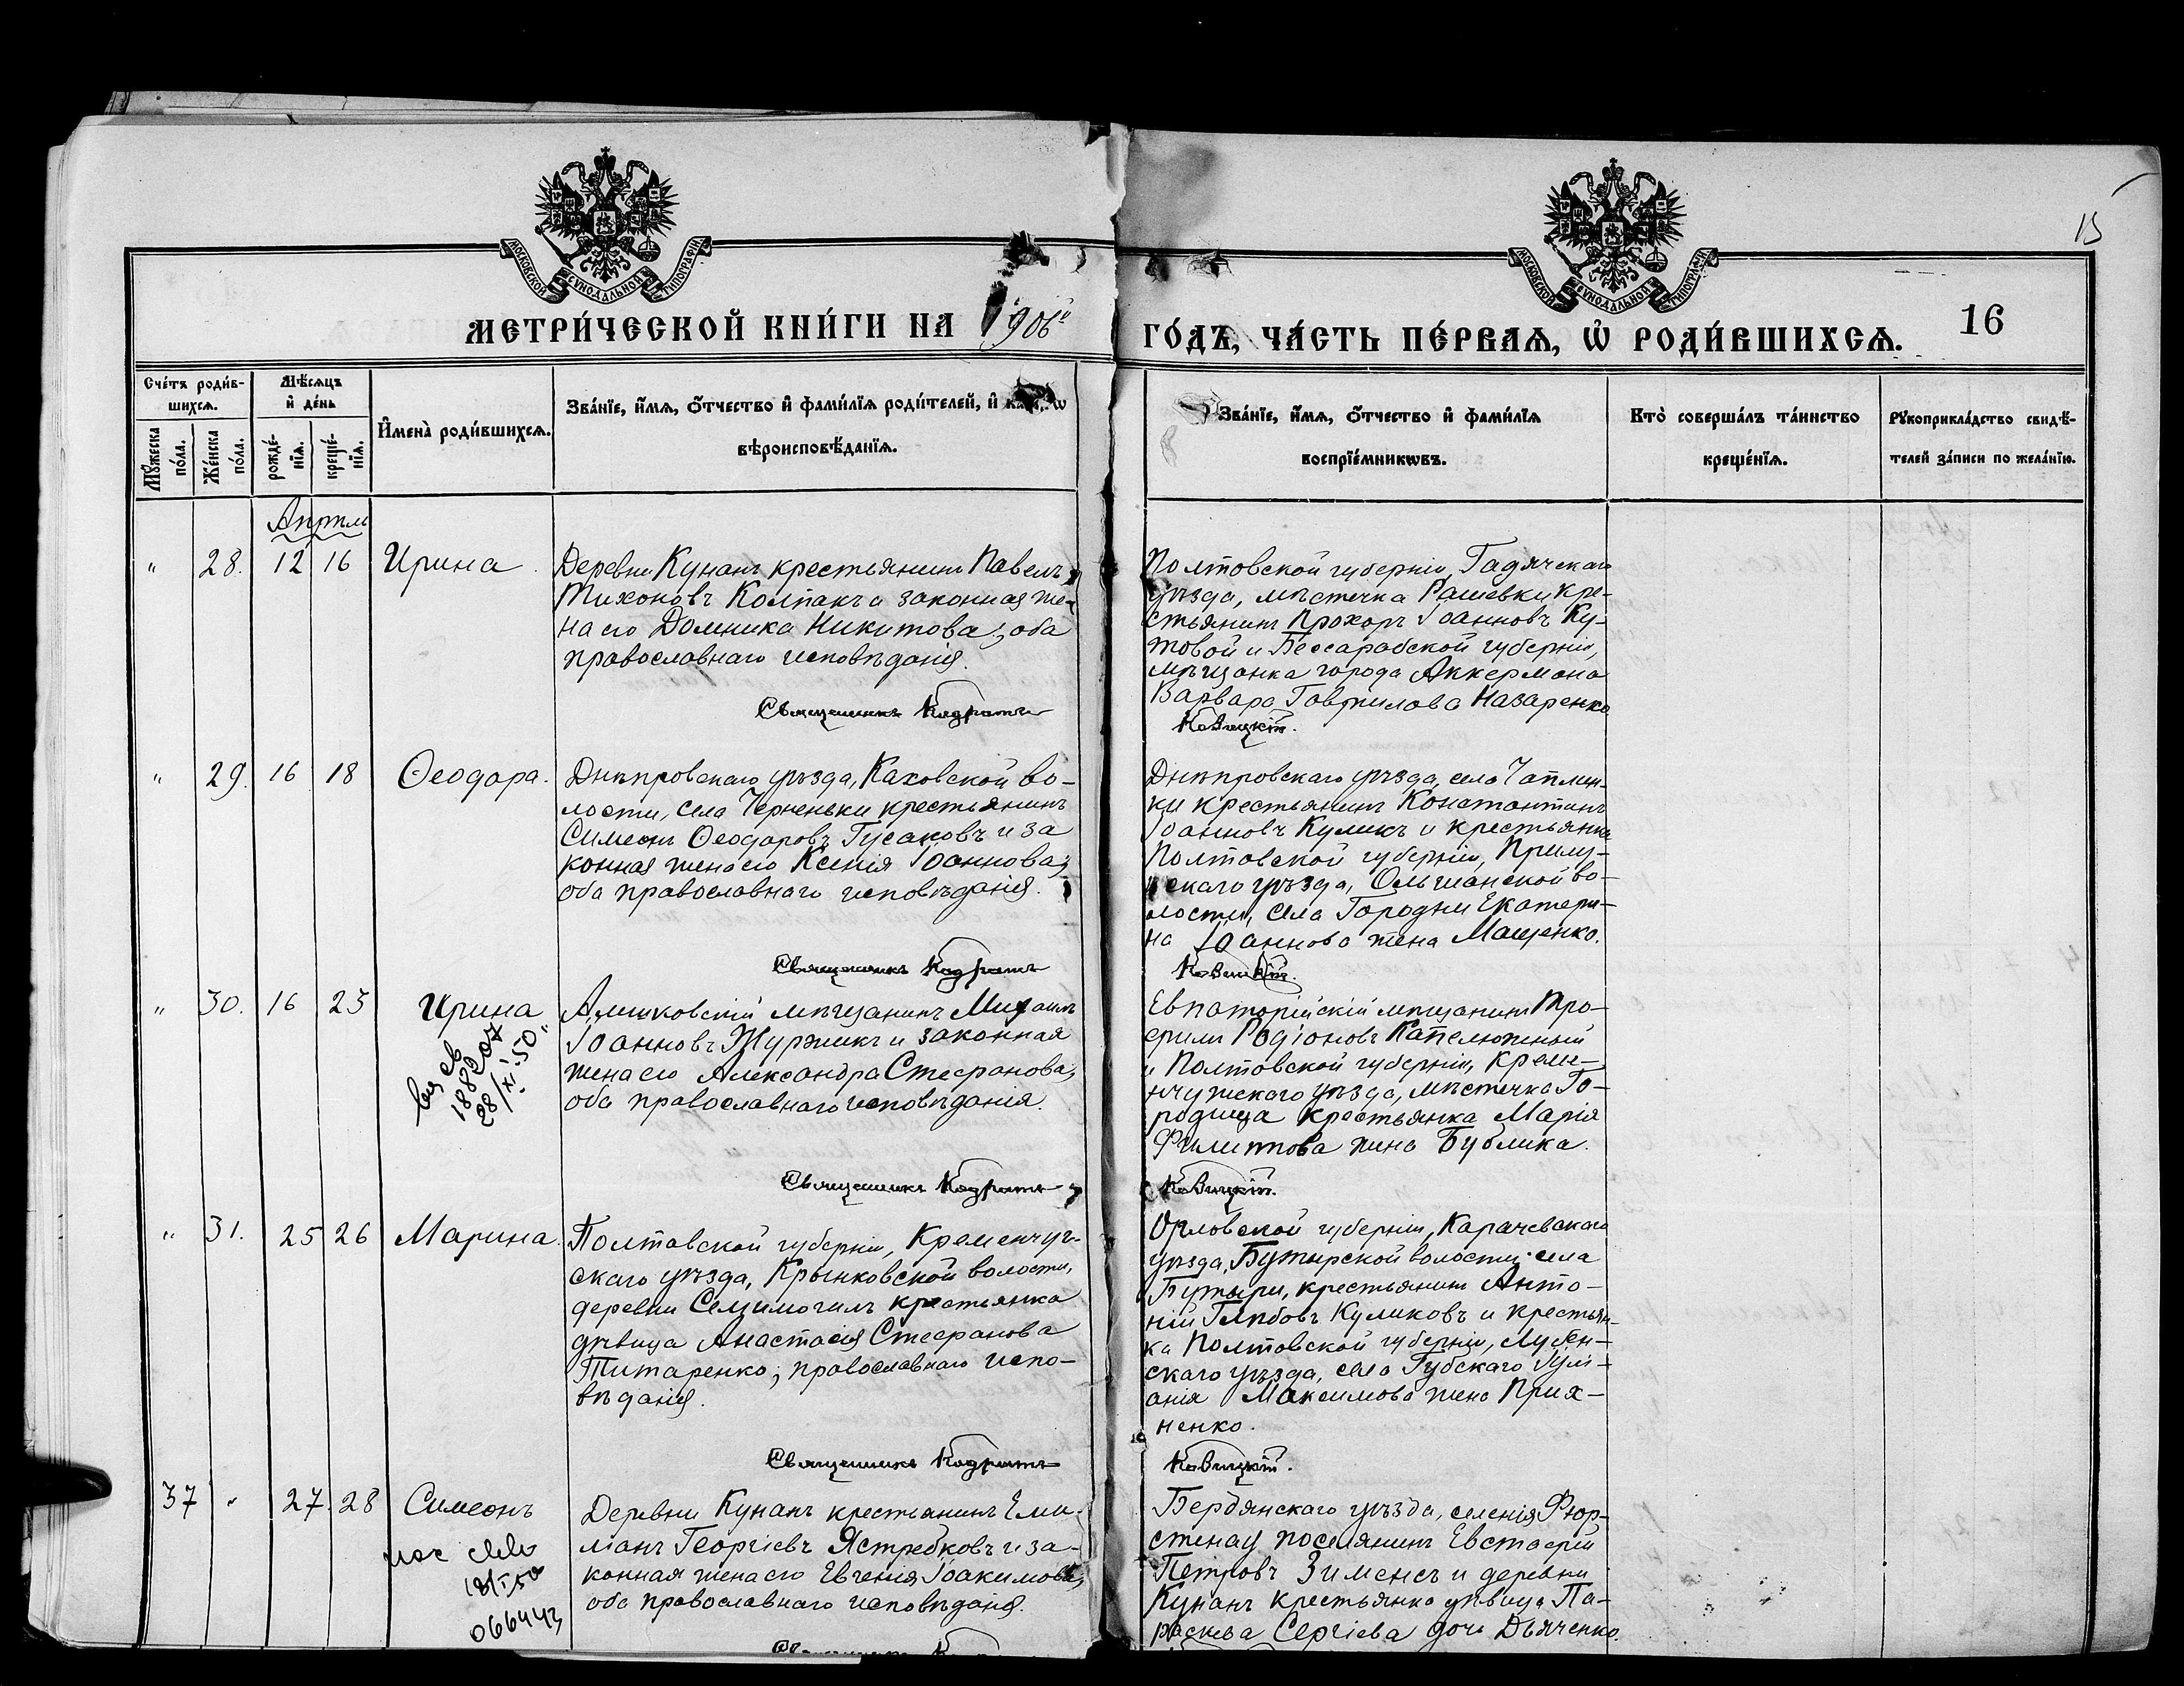 МОСКОВСКОЙ СѴНОДАЛЬНОЙ ТИПОГРАФІИ
МОСКОВСКОЙ СѴНОДАЛЬНОЙ ТИПОГРАФІИ
15
МЕТРИ́ЧЕСКОЙ КНИ́ГИ НА 1906й ГО́ДЪ, ЧА́СТЬ ПЕ́РВАѦ, Ѡ҆ РОДИ́ВШИХСѦ. 16
Сче́тъ роди́в-
шихсѧ.
Мꙋжеска по́ла.
Же́нска по́ла.
Мѣ́сѧцъ
и҆ де́нь
рожде́-
нїѧ.
креще́-
нїѧ.
И҆мена̀ роди́вшихсѧ.
Зва́нїе, и҆́мѧ, ѻ҆́тчество и҆ фамилїѧ роди́телей, и҆ ѡ
вѣроисповѣ́данїѧ.
Зва́нїе, и҆́мѧ, ѻ҆́тчество и҆ фами́лїѧ
воспрїе́мникѡвъ.
Кто̀ соверша́лъ та́инство
креще́нїѧ.
Рꙋкоприкла́дство свидѣ́-
телей за́писи по жела́нїю.
Апрѣль
" 28. 12 16 Ирина.
Деревни Кунанъ крестьянинъ Павелъ
Тихоновъ Колпакъ и законная же-
на его Домника Никитова; оба
православнаго исповѣданія.
Священникъ Кодратъ
Полтовской губерніи, Гадячскаго
уѣзда, мѣстечка Рашевки кре-
стьянинъ Прохоръ Іоанновъ Ку-
товой и Бессарабской губерніи,
мѣщанка города Аккермана
Варвара Гаврилова Назаренко
Ковицкій.
" 29. 16 18 Ѳеодора.
Днѣпровскаго уѣзда, Каховской во-
лости, села Черненьки крестьянинъ
Симеонъ Ѳеодоровъ Гусаковъ и за
конная жена его Ксенія Іоаннова;
оба православнаго исповѣданія.
Священникъ Кодратъ
Днѣпровскаго уѣзда, села Чаплин-
ки крестьянинъ Константинъ
Іоанновъ Куликъ и крестьянка
Полтовской губерніи, Прилу-
скаго уѣзда, Ольшанской во-
лости, села Городни Екатери-
на Іоаннова жена Мащенко.
Ковицкій.
" 30. 16 23 Ирина
28/XI.50"
Алешковскій мѣщанинъ Михаилъ
Іоанновъ Журжикъ и законная
жена его Александра Стефанова,
оба православнаго исповѣданія.
Священникъ Кодратъ
Евпаторійскій мѣщанинъ Тро-
фимъ Родіоновъ Капелюжный
и Полтовской губерніи, Креме-
нчужскаго уѣзда, мѣстечка Го-
родища крестьянка Марія
Филиппова жена Бублика.
Ковицкій.
" 31. 25 26 Марина.
Полтавской губерніи, Кременчуг-
скаго уѣзда, Крынковской волости,
деревни Семимогилъ крестьянка
дѣвица Анастасія Стефанова
Титаренко; православнаго испо-
вѣданія.
Священникъ Кодратъ
Орловской губерніи, Карачевскаго
уѣзда, Бутырской волости села
Бутыри, крестьянинъ Анто-
ній Глѣбовъ Куликовъ и крестьян-
ка Полтовской губерніи, Лубен-
скаго уѣзда, села Губскаго Іулі-
анія Максимова жена Прих-
ненко.
Ковицкій.
37 " 27. 28 Симеонъ
066443
Деревни Кунанъ крестьянинъ Еми-
ліанъ Георгіевъ Ястребковъ и за-
конная жена его Евгенія Іоакимова,
оба православнаго исповѣданія.
Бердянскаго уѣзда, селенія Фюр-
стенау поселянинъ Евстафій
Петровъ Зименсъ и деревни
Кунанъ крестьянка дѣвица Па-
раскева Сергіева дочь Дьяченко.